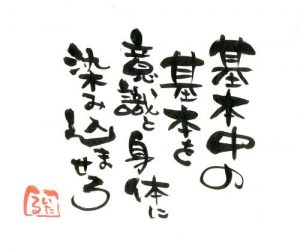 基本中の
基本を
意識と身体に
染み込ませろ